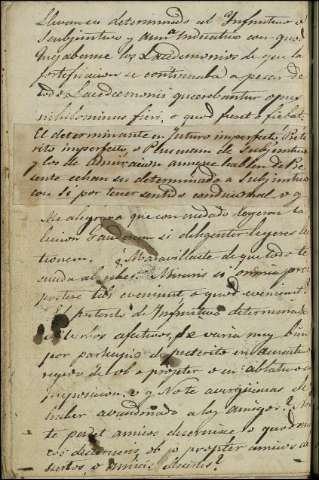 Llevan su determinado al Infinitivo o
Subjuntivo y tamn. Indicativo con quod
Quejabanse los Lacedemonios de que la
fortificacion se continuaba a pesar de
todo Lacedemonis quaerebantur opus
nihilominus fieri, o quod fieret o fiebat.
El determinante en futuro imperfecto, Prete
rito imperfecto, o Pluscuam de Subjuntivo
y los de admiracion aunque hablen de Pre
sente echan su determinado a Subjuntivo
con Si por tener sentido condicional v. g.
Me alegrara que con cuidado leyeras la
leccion Gauderem si diligenter legeres lec
tionem. ¿Maravillaste de que todo te
suceda al reves? Miraris si omnia prae
postere tibi eveniunt, o quod eveniant?
El preterito de Infinitivo determinado
de verbos afectivos, se varia muy bien
por participio de preterito en acusativo
regido de ob o propter o en ablativo sin
preposicion. v. g. No te avergüenzas de
haber abandonado a los amigos? Non
te pudet amicos deseruisse o quod
deserueris ob o propter amicos de
sertos, o amicis desertis?